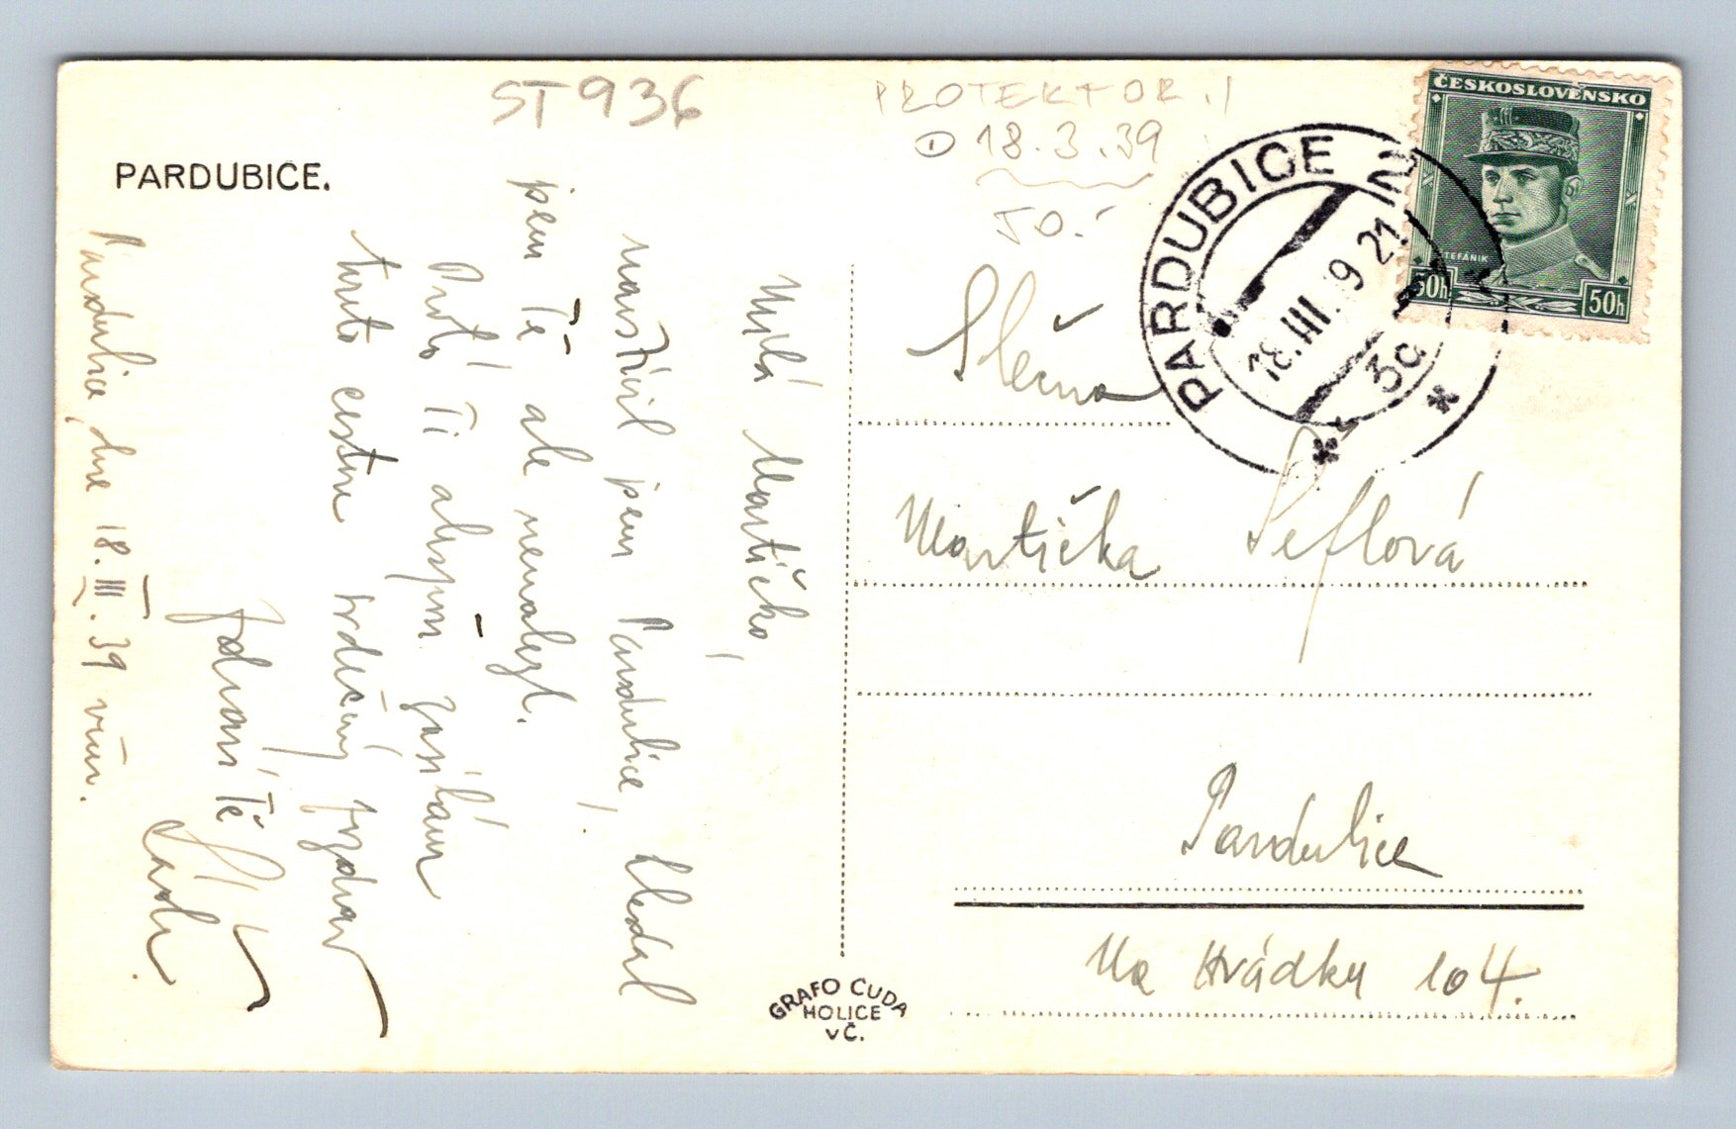 ST 936
PROTEKTOR.!
① 18.3.39
TO!
PARDUBICE.
Milá Martičko,
navštívil jsem Pardubice, hledal
jsem Tě ale nenalezl.
Proto Ti alespoň zasílám
touto cestou srdečný pozdrav
Zdraví Tě
Pardubice, dne 18.III.39 več.
ČESKOSLOVENSKO
ŠTEFÁNIK
50h 50h
PARDUBICE 2
18.III.39 21
3c
Slečna
Martička Šeflová
Pardubice
Na Hrádku 104.
GRAFO ČUDA
HOLICE
v Č.